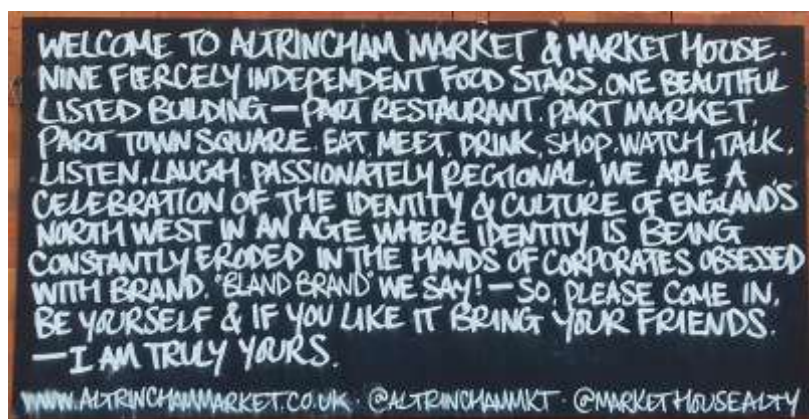 WELCOME TO ALTRINCHAM MARKET & MARKET HOUSE.
NINE FIERCELY INDEPENDENT FOOD STARS. ONE BEAUTIFUL
LISTED BUILDING — PART RESTAURANT. PART MARKET.
PART TOWN SQUARE. EAT, MEET, DRINK, SHOP. WATCH, TALK,
LISTEN, LAUGH. PASSIONATELY REGIONAL, WE ARE A
CELEBRATION OF THE IDENTITY & CULTURE OF ENGLAND'S
NORTH WEST IN AN AGE WHERE IDENTITY IS BEING
CONSTANTLY ERODED IN THE HANDS OF CORPORATES OBSESSED
WITH BRAND. "BLAND BRAND" WE SAY! — SO, PLEASE COME IN,
BE YOURSELF & IF YOU LIKE IT BRING YOUR FRIENDS.
— I AM TRULY YOURS.
WWW.ALTRINCHAMMARKET.CO.UK · @ALTRINCHAMMKT · @MARKETHOUSEALTY